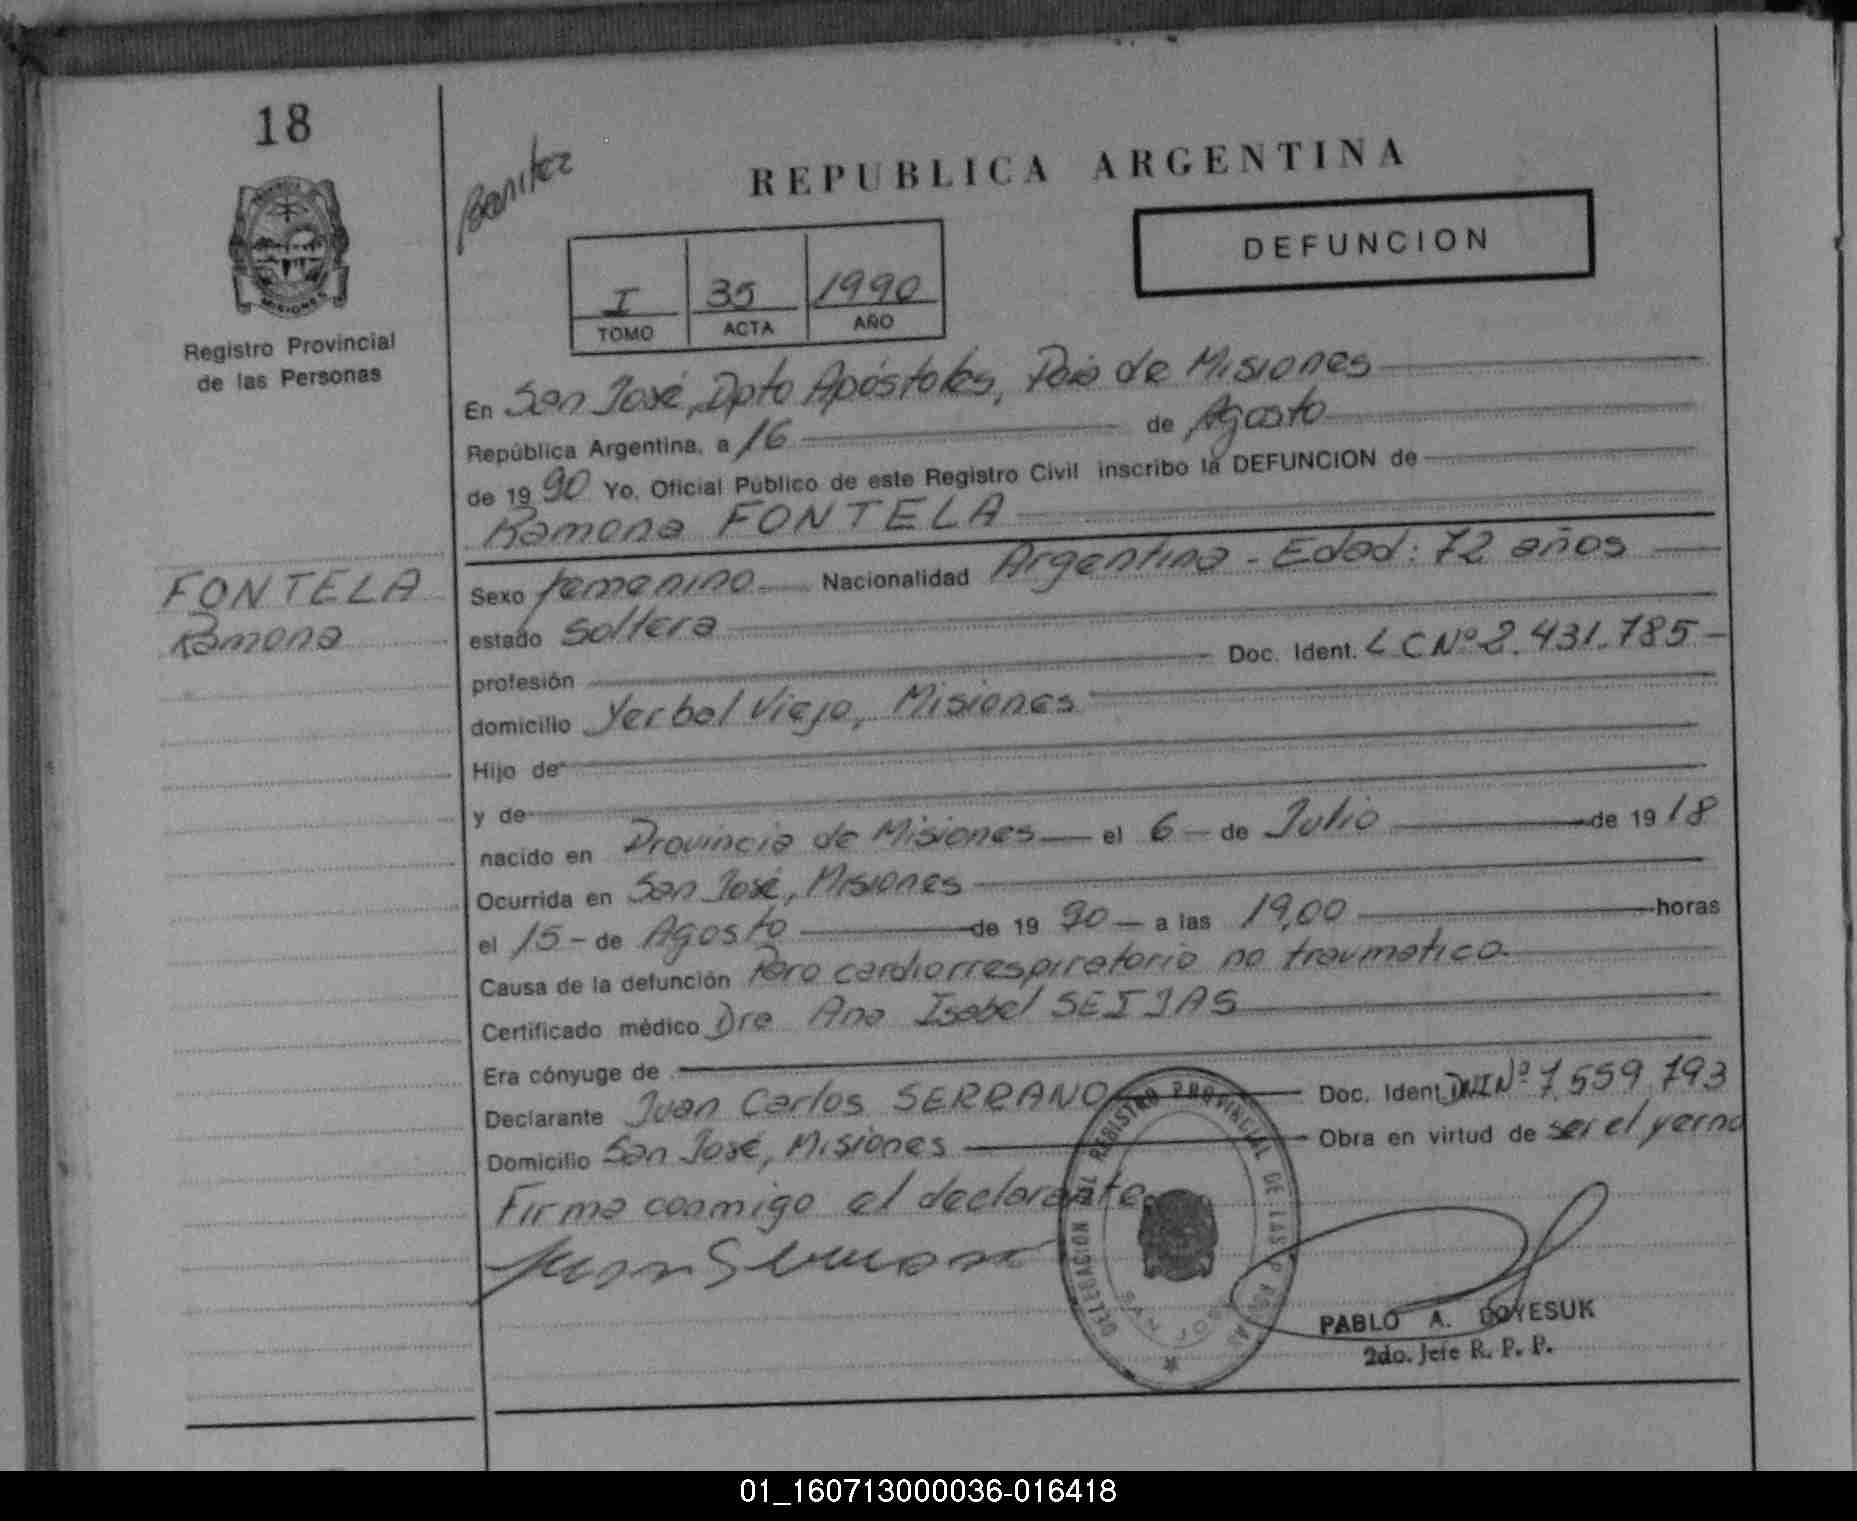 18
Benitez
REPUBLICA ARGENTINA
DEFUNCION
I 35 1990
TOMO ACTA AÑO
MISIONES
Registro Provincial
de las Personas
En San José, Dpto Apóstoles, Pcia de Misiones
República Argentina, a 16 de Agosto
de 1990 Yo, Oficial Público de este Registro Civil inscribo la DEFUNCION de
Ramona FONTELA
FONTELA
Ramona
Sexo femenino Nacionalidad Argentina - Edad: 72 años
estado soltera
profesión Doc. Ident. LC Nº 2.431.785-
domicilio Yerbal Viejo, Misiones
Hijo de
y de
nacido en Provincia de Misiones el 6 de Julio de 1918
Ocurrida en San José, Misiones
el 15 - de Agosto de 1990 a las 19,00 horas
Causa de la defunción Paro cardiorrespiratorio no traumatico
Certificado médico Dra Ana Isabel SEIJAS
Era cónyuge de
Declarante Juan Carlos SERRANO Doc. Ident. DNI Nº 7.559.793
Domicilio San José, Misiones Obra en virtud de ser el yerno
Firma conmigo el declarante
Juan Serrano
DELEGACION DEL REGISTRO PROVINCIAL DE LAS PERSONAS
SAN JOSE
PABLO A. BOYESUK
2do. Jefe R. P. P.
01_160713000036-016418